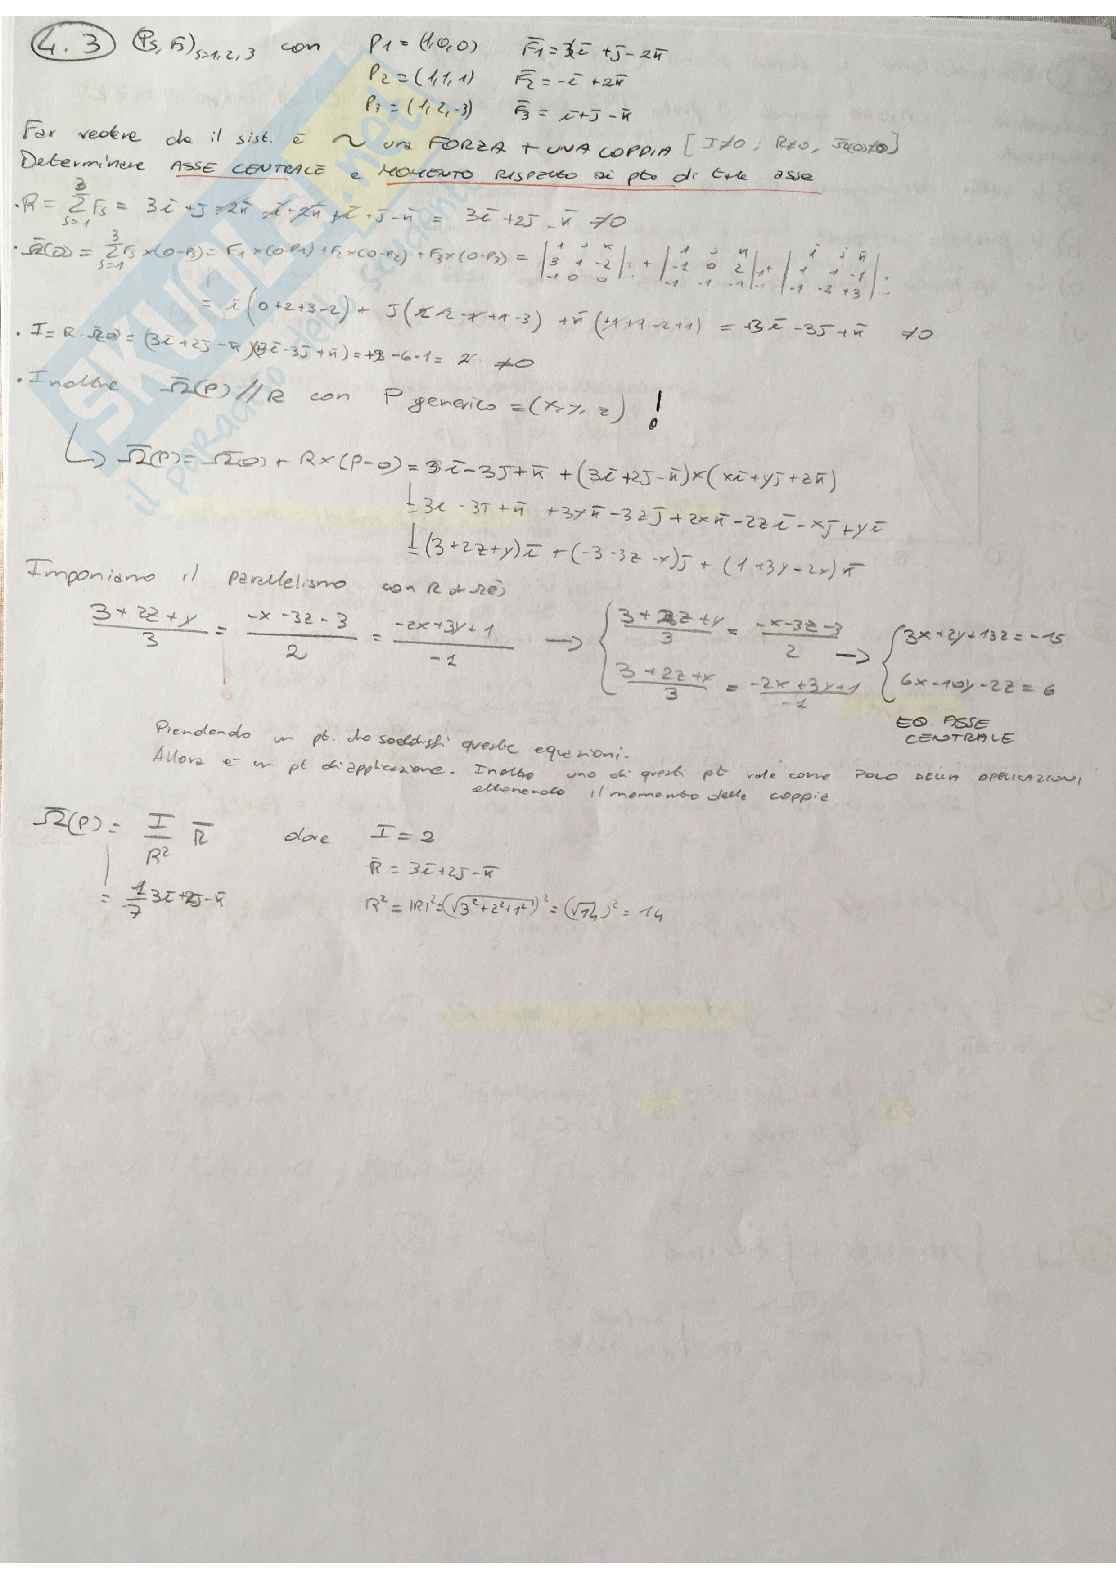 4.3 (Ps, Fs)s=1,2,3 con P1 = (1,0,0) F̄1 = 3ī + j̄ - 2k̄
P2 = (1,1,1) F̄2 = -ī + 2k̄
P3 = (1,2,-3) F̄3 = ī + j̄ - k̄
Far vedere che il sist. è ~ una FORZA + UNA COPPIA [J≠0, R≠0,
Determinare ASSE CENTRALE e MOMENTO RISPETTO ai pto di tale asse
• R = Σ Fs = 3ī + j̄ - 2k̄ - ī + 2k̄ + ī + j̄ - k̄ = 3ī + 2j̄ - k̄ ≠0
• Ω̄(O) = Σ Fs × (O-Ps) = F1 × (O-P1) + F2 × (O-P2) + F3 × (O-P3) = | i j k ; 3 1 -2 ; -1 0 0 | + | i j k ; -1 0 2 ; -1 -1 -1 | + | i j k ; 1 1 -1 ; -1 -2 +3 | =
= ī (0+2+3-2) + j̄ ( + k̄ ( = 3ī - 3j̄ + k̄ ≠0
• I = R · Ω̄(O) = (3ī + 2j̄ - k̄)(3ī - 3j̄ + k̄) = +9 - 6 - 1 = 2 ≠0
• Inoltre Ω̄(P) // R con P generico = (x, y, z) !
↳ Ω̄(P) = Ω̄(O) + R × (P-O) = 3ī - 3j̄ + k̄ + (3ī + 2j̄ - k̄) × (xī + yj̄ + zk̄)
= 3ī - 3j̄ + k̄ + 3yk̄ - 3zj̄ + 2xk̄ - 2zī - xj̄ + yī
= (3+2z+y)ī + (-3-3z-x)j̄ + (1+3y-2x)k̄
Imponiamo il parallelismo con R
3+2z+y/3 = -x-3z-3/2 = -2x+3y+1/-1 → { 3+2z+y/3 = -x-3z-3/2 → { 3x+2y+13z = -15
3+2z+y/3 = -2x+3y+1/-1 6x-10y-2z = 6
EQ ASSE
CENTRALE
Prendendo un pt. che soddisfi queste equazioni.
Allora è un pt di applicazione. Inoltre uno di questi pt vale come POLO DELLA APPLICAZIONI,
ottenendo il momento della coppia
Ω̄(P) = I/R² R̄ dove I = 2
R̄ = 3ī + 2j̄ - k̄
= 1/7 3ī + 2j̄ - k̄ R² = |R|² = (√3²+2²+1²)² = (√14)² = 14
SKUOLA.net
il paradiso dello studente